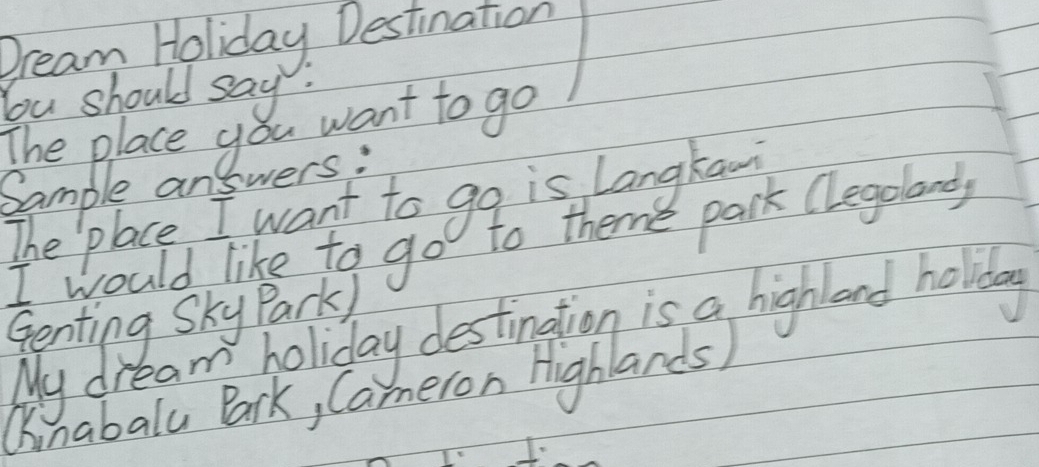 Dream Holiday Destination
You should say:
The place you want to go
Sample answers:
The place I want to go is Langkawi
I would like to go to theme park (Legoland,
Genting SkyPark)
My dream holiday destination is a highland holiday
(Kinabalu Park, Cameron Highlands)